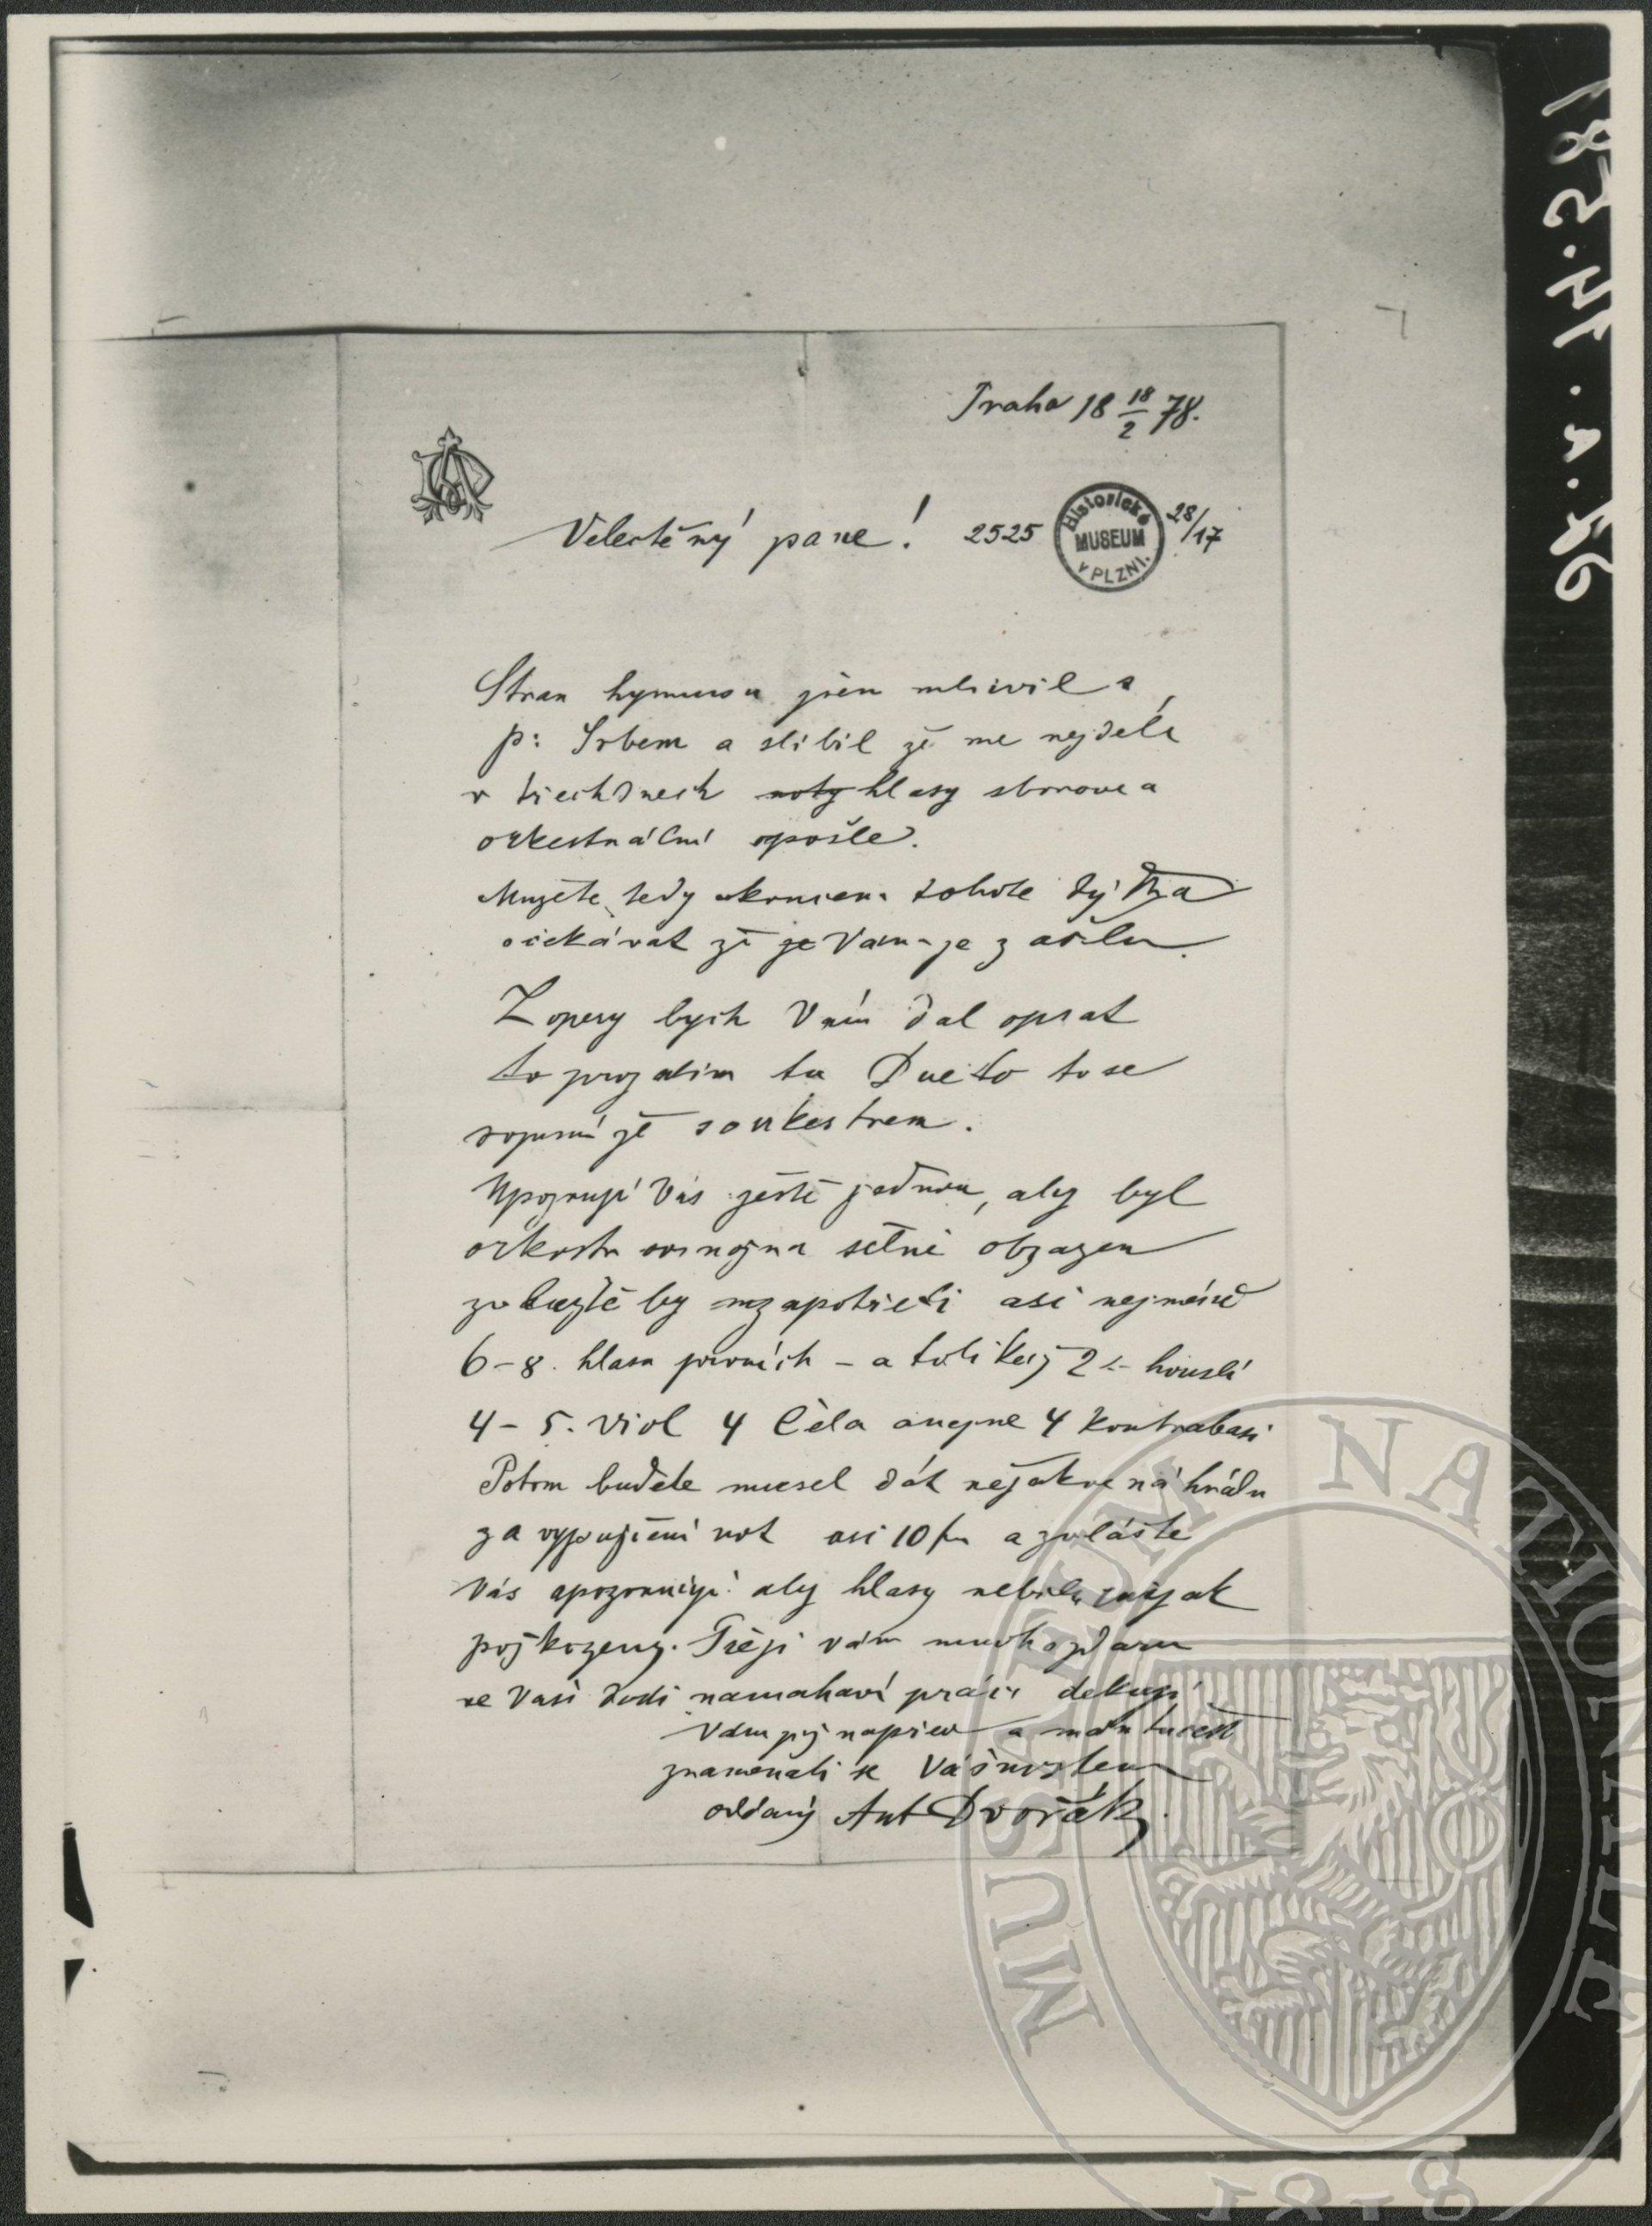 Praha 18 18/2 78.
Velectěný pane! 2525
Historické MUSEUM v PLZNI. 28/17
Stran hymnusu jsem mluvil s
p: Srbem a slíbil že me nejdéle
v třech dnech noty hlasy sborove a
orkestrální pošle.
Muzete tedy koncem tohote
očekávat že je Vam je zašlu.
Z opery bych Vám dal opsat
to prozatim ta Dueto to se
rozumí že s orkestrem.
Upozornuji Vás ještě jednou, aby byl
orkestr možna silně obzazen
zvlaště by zapotřebi asi nejméně
6-8. hlasu prvních - a tolikéž 2 houslí
4-5. viol 4 Čela a 4 Kontrabasi
Potom budete musel dát nějakou náhradu
za vypujčení not asi 10 a zvláště
Vás upozornuji aby hlasy nebily
poškozeny. Přeji vám mnoho zdaru
ve Vaší namahaví práci dekuji
Vám napřed a mám
znamenati se Váš
oddaný Ant Dvořák
185.41. A.76
MUSAEUM NATIONALE
1818